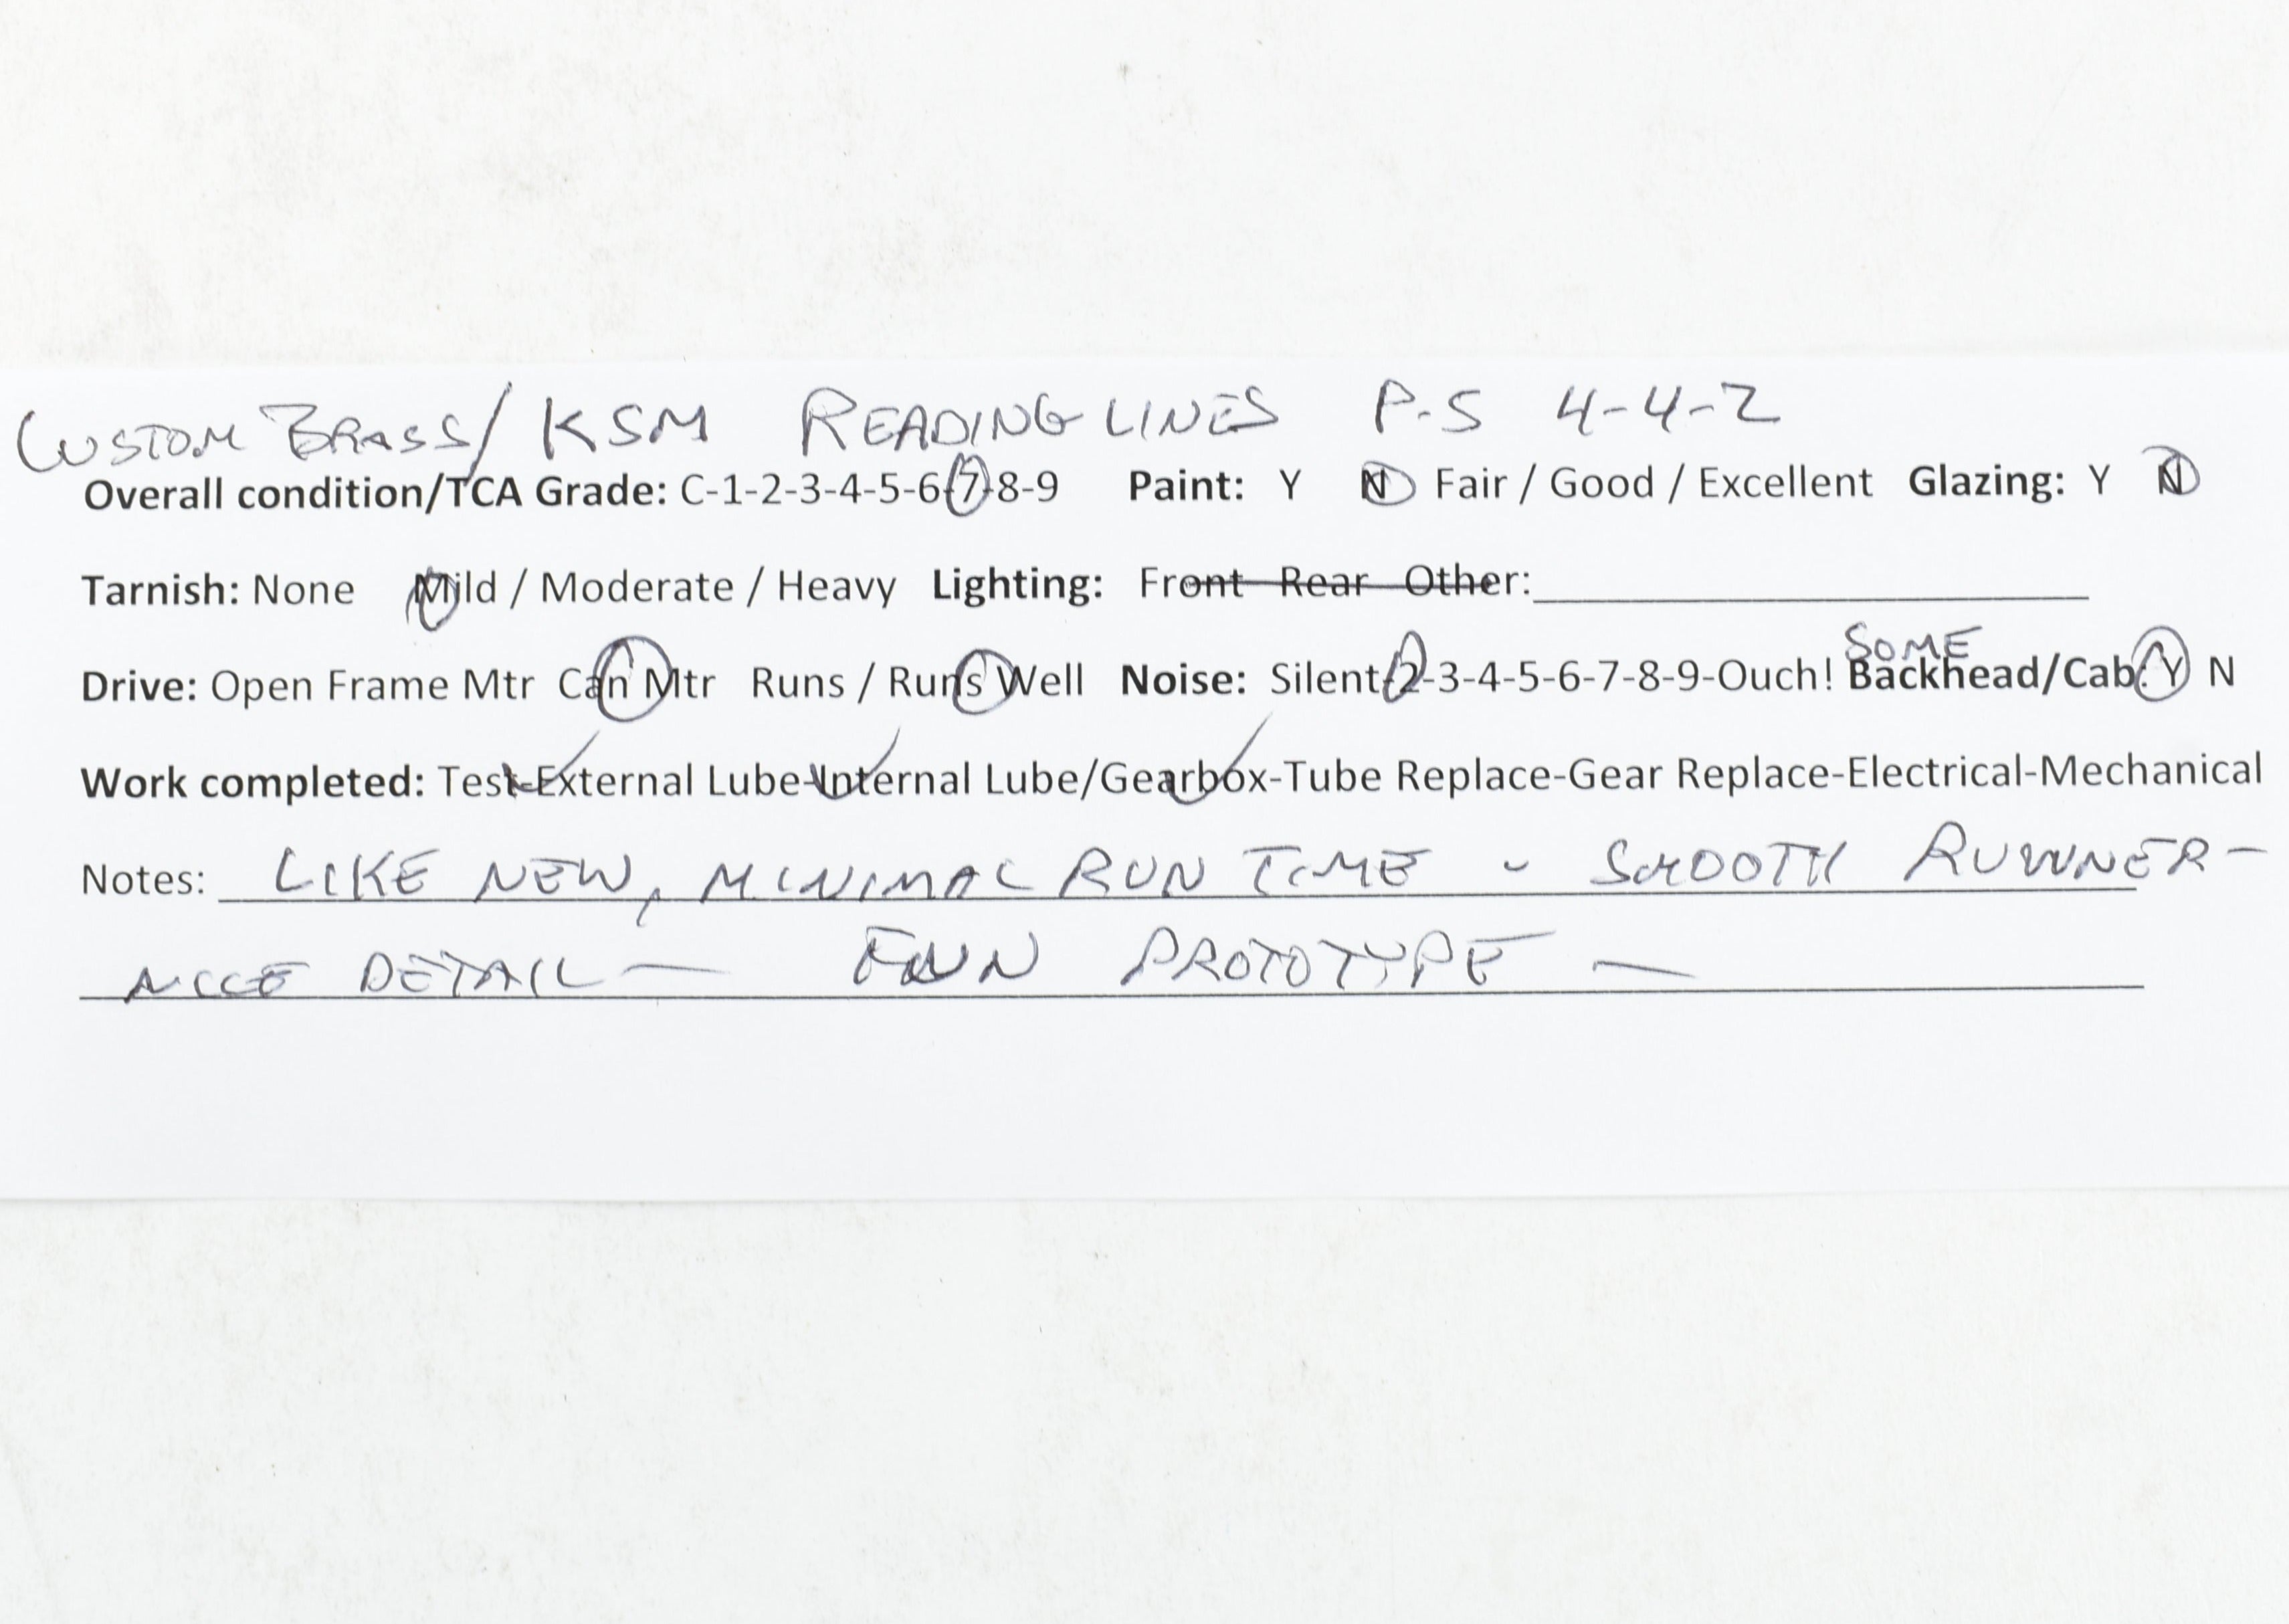 CUSTOM BRASS/KSM READING LINES P-5 4-4-2
Overall condition/TCA Grade: C-1-2-3-4-5-6-7-8-9 Paint: Y N Fair / Good / Excellent Glazing: Y N
Tarnish: None Mild / Moderate / Heavy Lighting: Front Rear Other:
SOME
Drive: Open Frame Mtr Can Mtr Runs / Runs Well Noise: Silent-2-3-4-5-6-7-8-9-Ouch! Backhead/Cab: Y N
Work completed: Test-External Lube-Internal Lube/Gearbox-Tube Replace-Gear Replace-Electrical-Mechanical
Notes: LIKE NEW, MINIMAL RUN TIME - SMOOTH RUNNER -
NICE DETAIL - FUN PROTOTYPE -